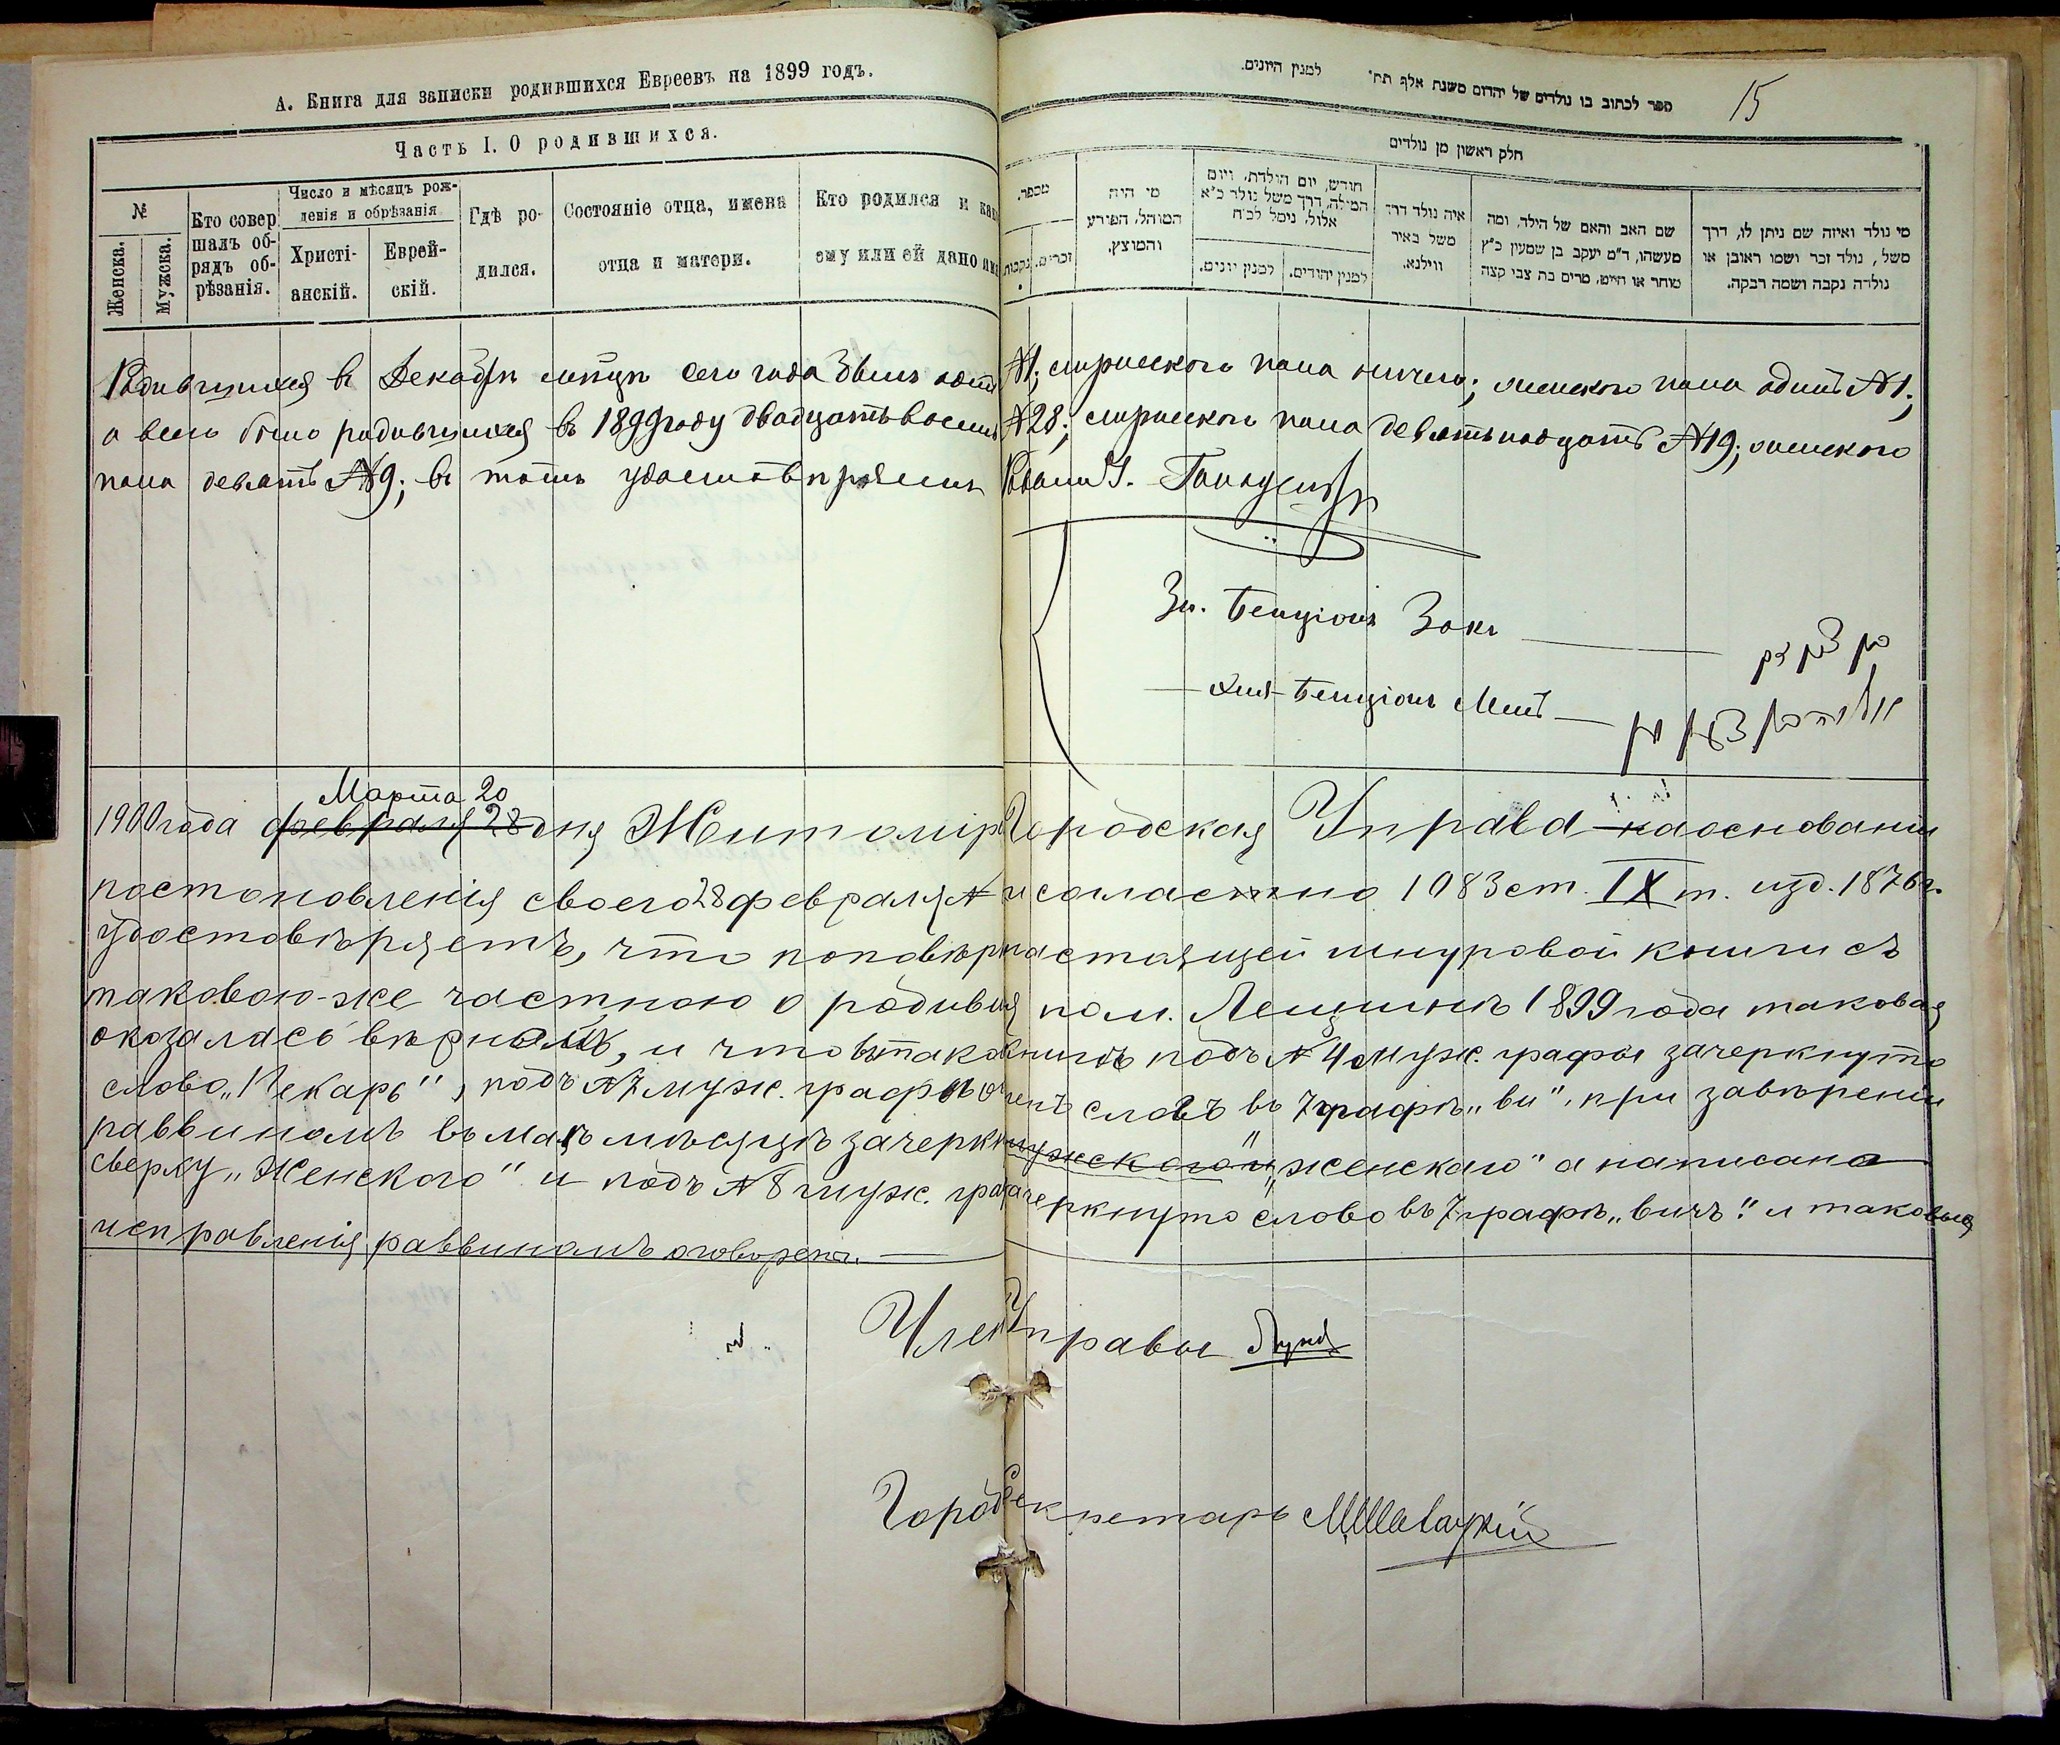 А. Книга для записки родившихся Евреевъ на 1899 годъ.
Часть I. О родившихся.
№
Женска.
Мужска.
Кто совер
шалъ об-
рядъ об-
рѣзанія.
Число и мѣсяцъ рож-
денія и обрѣзанія
Христі-
анскій.
Еврей-
скій.
Гдѣ ро-
дился.
Состояніе отца, имена
отца и матери.
Кто родился и как
ему или ей дано имя
ספר לכתוב בו נולדים של יהדום משנת אלף תת׳ למנין היונים.
15
חלק ראשון מן נולדים
מספר.
נקבות
זכרים.
מי היה
המוהל, הפורע
והמוצץ.
חודש, יום הולדת, ויום
המילה, דרך משל נולד כ״א
אלול, נימל לכ״ח
למנין יונים.
למנין יהודים.
איה נולד דרך
משל באיר
ווילנא.
שם האב והאם של הילד, ומה
מעשהו, ד״מ יעקב בן שמעון כ״ץ
סוחר או חייט, מרים בת צבי קצה
מי נולד ואיזה שם ניתן לו, דרך
משל, נולד זכר ושמו ראובן או
נולדה נקבה ושמה רבקה.
Родившихся в Декабрѣ мѣсяцѣ сего года было одинъ №1; мужескаго пола ничего; женскаго пола одинъ №1;
а всего было родившихся въ 1899 году двадцать восемь №28; мужескаго пола девятьнадцать №19; женскаго
пола девять №9; въ томъ удостовѣряемъ
Зн. Бенціонъ Закъ
בן ציון זק
Бенціонъ
Марта 20
1900 года февраля 28 дня Житомір Городская Управа на основаніи
постоновленія своего 28 февраля № и согласно 1083 ст. IX т. изд. 1876 г.
удостовѣряетъ, что поповѣрк настоящей шнуровой книги съ
таковою-же частною о родивш я по м. Лещинѣ 1899 года таковая
оказалась вѣрною, и что въ тако книгѣ подъ № 4 муж. графы зачеркнуто
слово „Пекарь", подъ № 7 муж. графы словъ въ 7 графѣ „ви", при завѣреніи
раввиномъ въ маѣ мѣсяцѣ зачеркн мужскаго и „женскаго" а написано
сверху „Женского" и подъ № 8 муж. граф зачеркнуто слово въ 7 графѣ „вичъ" и таковыя
исправленія раввиномъ оговорены.
Член Управы
Город Секретарь